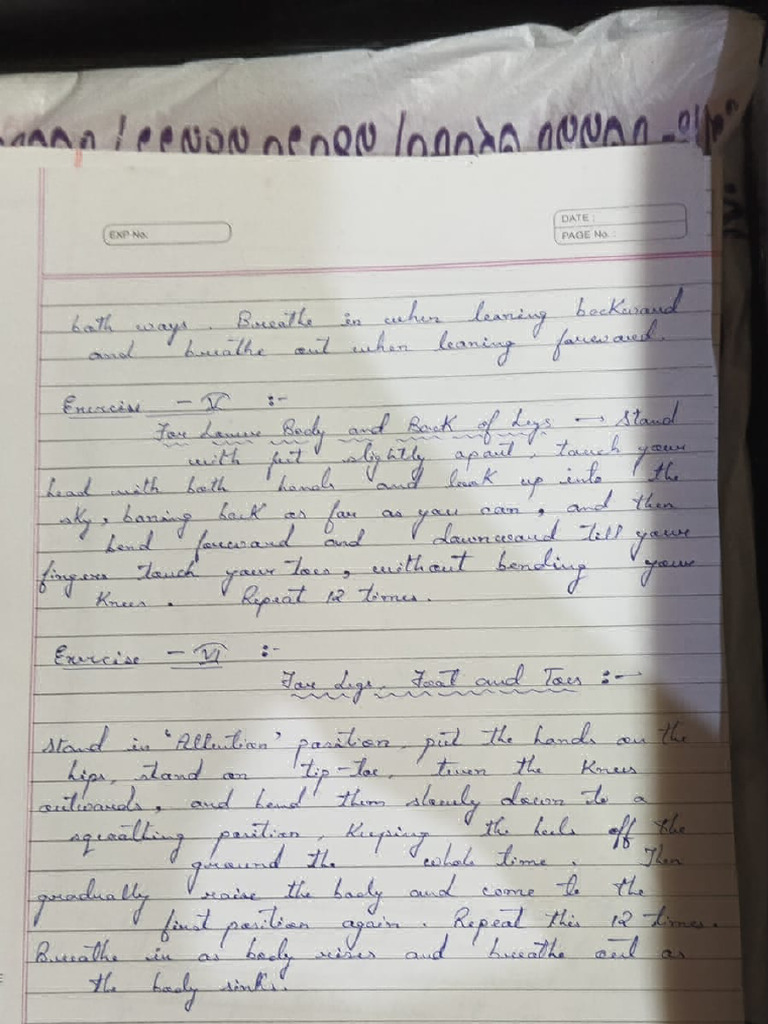 EXP No.
DATE :
PAGE No. :
both ways. Breathe in when leaning backward
and breathe out when leaning forward.
Exercise - V :-
For Lower Body and Back of Legs → Stand
with feet slightly apart, touch your
head with both hands and look up into the
sky, baning back as far as you can, and then
bend forward and downward till your
fingers touch your toes, without bending your
Knees. Repeat 12 times.
Exercise - VI :-
For Legs, Foot and Toes :-
Stand in 'Attention' position, put the hands on the
hips, stand on tip-toe, turn the Knees
outwards, and bend them slowly down to a
squatting position, Keeping the heels off the
ground the whole time. Then
gradually raise the body and come to the
first position again. Repeat this 12 times.
Breathe in as body rises and breathe out as
the body sinks.